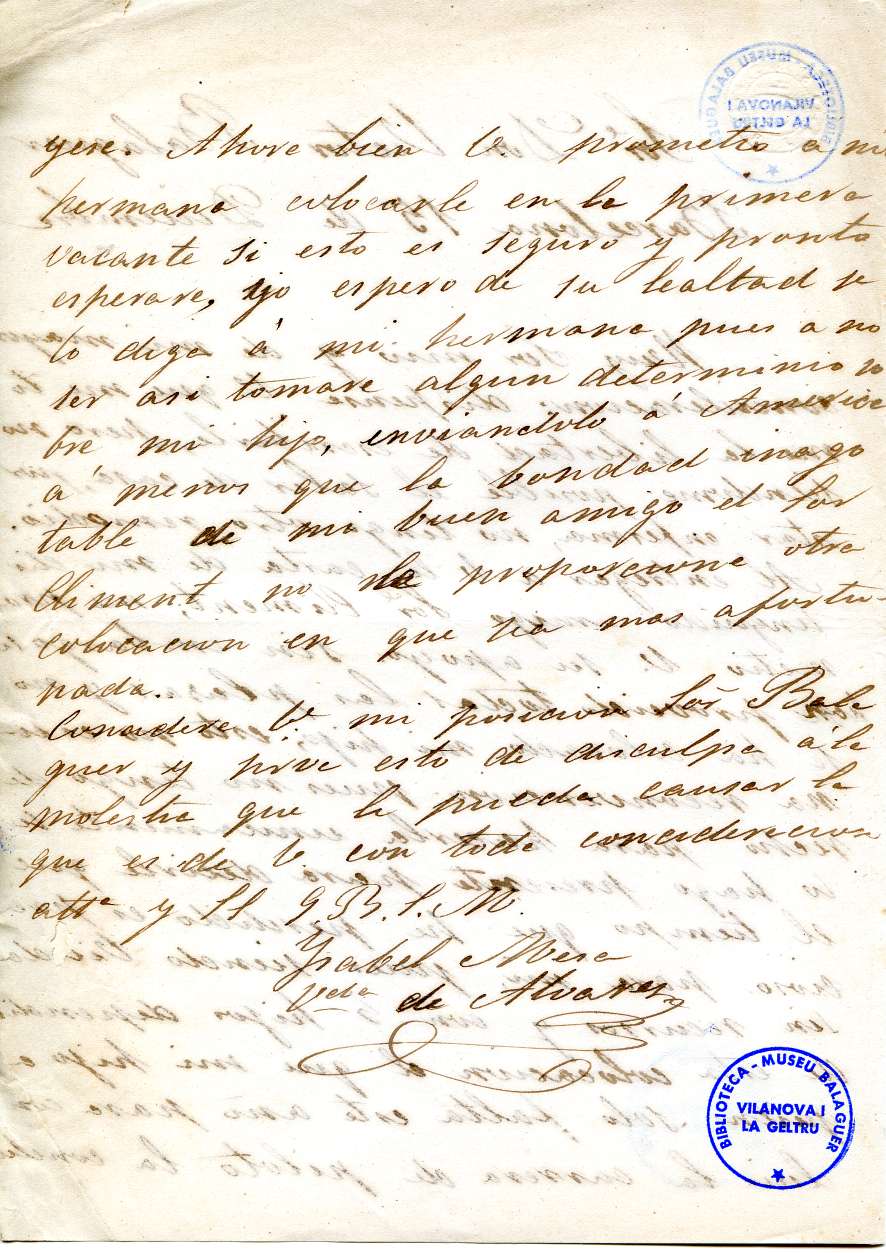 yese. Ahora bien V. prometio a mi
hermana colocarle en la primera
vacante si esto es seguro y pronto
esperare, yo espero de su lealtad se
lo diga á mi hermana pues a no
ser asi tomare algun determinio so
bre mi hijo, enviandolo á America
á menos que la bondad inago
table de mi buen amigo el Sor
Climent no le proporcione otra
colocacion en que sea mas afortu-
nada.
Concidere V. mi posicion Sor Bala
guer y sirva esto de disculpa á la
molestia que le pueda causar la
que es de V. con toda concideracion
atta y SS Q.B.S.M.
Ysabel Mesa
Vda de Alvarez
BIBLIOTECA - MUSEU BALAGUER
VILANOVA I
LA GELTRU